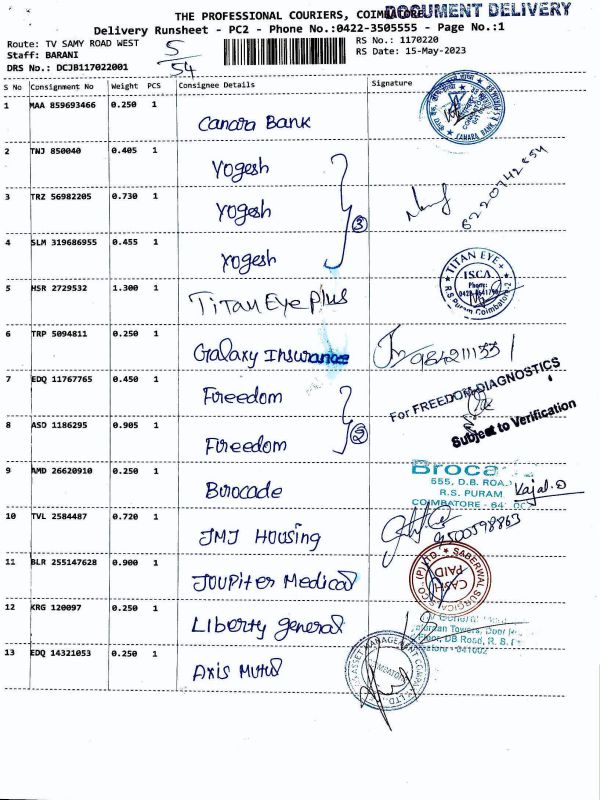 THE PROFESSIONAL COURIERS, COIMBATORE
DOCUMENT DELIVERY
Delivery Runsheet - PC2 - Phone No.:0422-3505555 - Page No.:1
Route: TV SAMY ROAD WEST
Staff: BARANI
DRS No.: DCJB117022001
5/54
RS No.: 1170220
RS Date: 15-May-2023
S No Consignment No Weight PCS Consignee Details Signature
1 MAA 859693466 0.250 1 Canara Bank
2 TNJ 850040 0.405 1 Yogesh
3 TRZ 56982205 0.730 1 Yogesh
4 SLM 319686955 0.455 1 Yogesh
3
5 HSR 2729532 1.300 1 TITAN Eye Plus
TITAN EYE+
ISCA
Phone:
R.S Puram Coimbatore-2
6 TRP 5094811 0.250 1 Galaxy Insurance
7 EDQ 11767765 0.450 1 Freedom
8 ASD 1186295 0.905 1 Freedom
2
For FREEDOM DIAGNOSTICS
Subject to Verification
9 AMD 26620910 0.250 1 Brocade
555, D.B. ROAD
R.S. PURAM
Kajal.D
10 TVL 2584487 0.720 1 JMJ Housing
9500598863
11 BLR 255147628 0.900 1 Joupiter Medical
SABERWAL SURGICALS CO. (P) LTD.
CASH PAID
12 KRG 120097 0.250 1 Liberty general
Floor, DB Road, R. S.
641002
13 EDQ 14321053 0.250 1 Axis Mutul